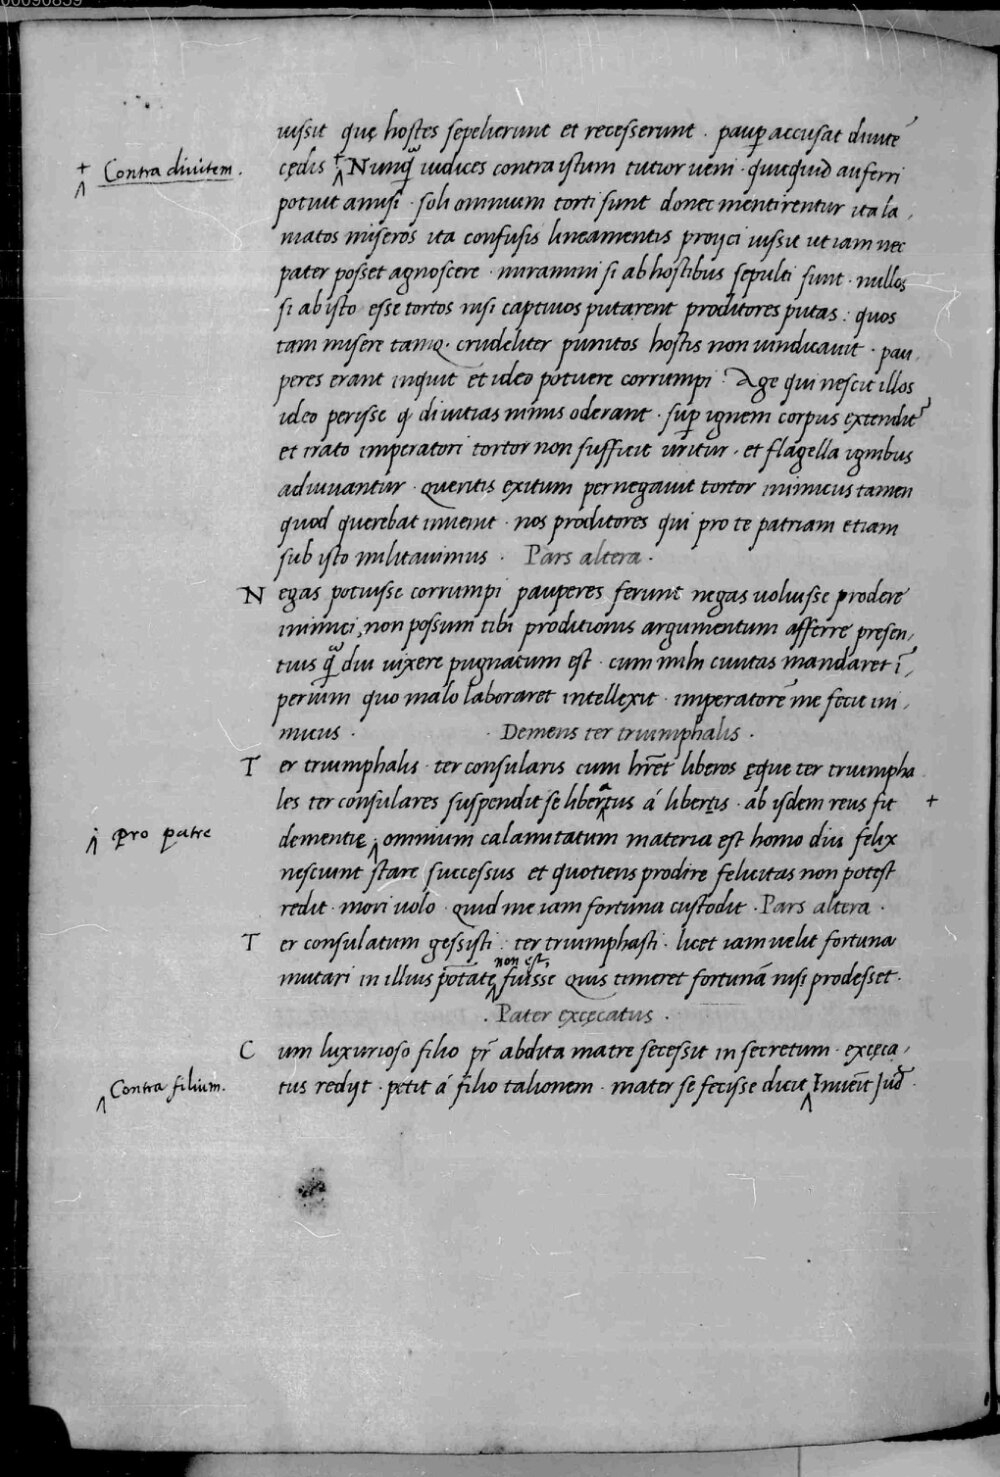 iussit quę hostes sepelierunt et recesserunt . paup accusat diuitē
+ Contra diuitem . cędis + Nunq̃ iudices contra istum tutior ueni . quicquid auferri
potuit amisi . soli omnium torti sunt donec mentirentur ita la,
niatos miseros ita confusis lineamentis proijci iussit ut iam nec
pater posset agnoscere . miramini si ab hostibus sepulti sunt . nullos
si ab isto esse tortos nisi captiuos putarent proditores putas : quos
tam misere tamq. crudeliter punitos hostis non uindicauit . pau,
peres erant inquit et ideo potuere corrumpi : Age qui nescit illos
ideo perisse q diuitias minus oderant . sup ignem corpus extendit
et irato imperatori tortor non sufficit uritur . et flagella ignibus
adiuuantur . queritis exitum pernegauit tortor inimicus tamen
quod querebat inuenit . nos proditores qui pro te patriam etiam
sub isto militauimus . Pars altera .
N egas potuisse corrumpi pauperes ferunt negas uoluisse prodere
inimici, non possum tibi proditionis argumentum afferre presen,
tius q̃ diu uixere pugnatum est . cum mihi ciuitas mandaret ī,
perium quo malo laboraret intellexit . imperatorē me fecit ini,
micus . . Demens ter triumphalis .
T er triumphalis . ter consularis cum hr̄et liberos ęque ter triumpha
les ter consulares suspendit se libertus á libertis . ab ijsdem reus fit +
pro patre dementię . omnium calamitatum materia est homo diu felix
nesciunt stare successus et quotiens prodire felicitas non potest
redit . mori uolo . quid me iam fortuna custodit . Pars altera .
T er consulatum gessisti : ter triumphasti . licet iam uelit fortuna
non est,
mutari in illius potatę fuisse quis timeret fortunā nisi prodesset .
. Pater excęcatus .
C um luxurioso filio pr̄ abdita matre secessit in secretum . excęca,
Contra filium . tus redijt . petit á filio talionem . mater se fecisse dicit Inuenit Iud .